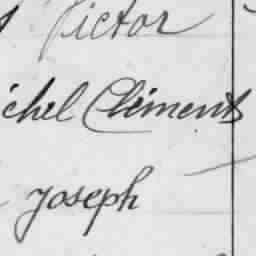 Victor
chel Clément
Joseph